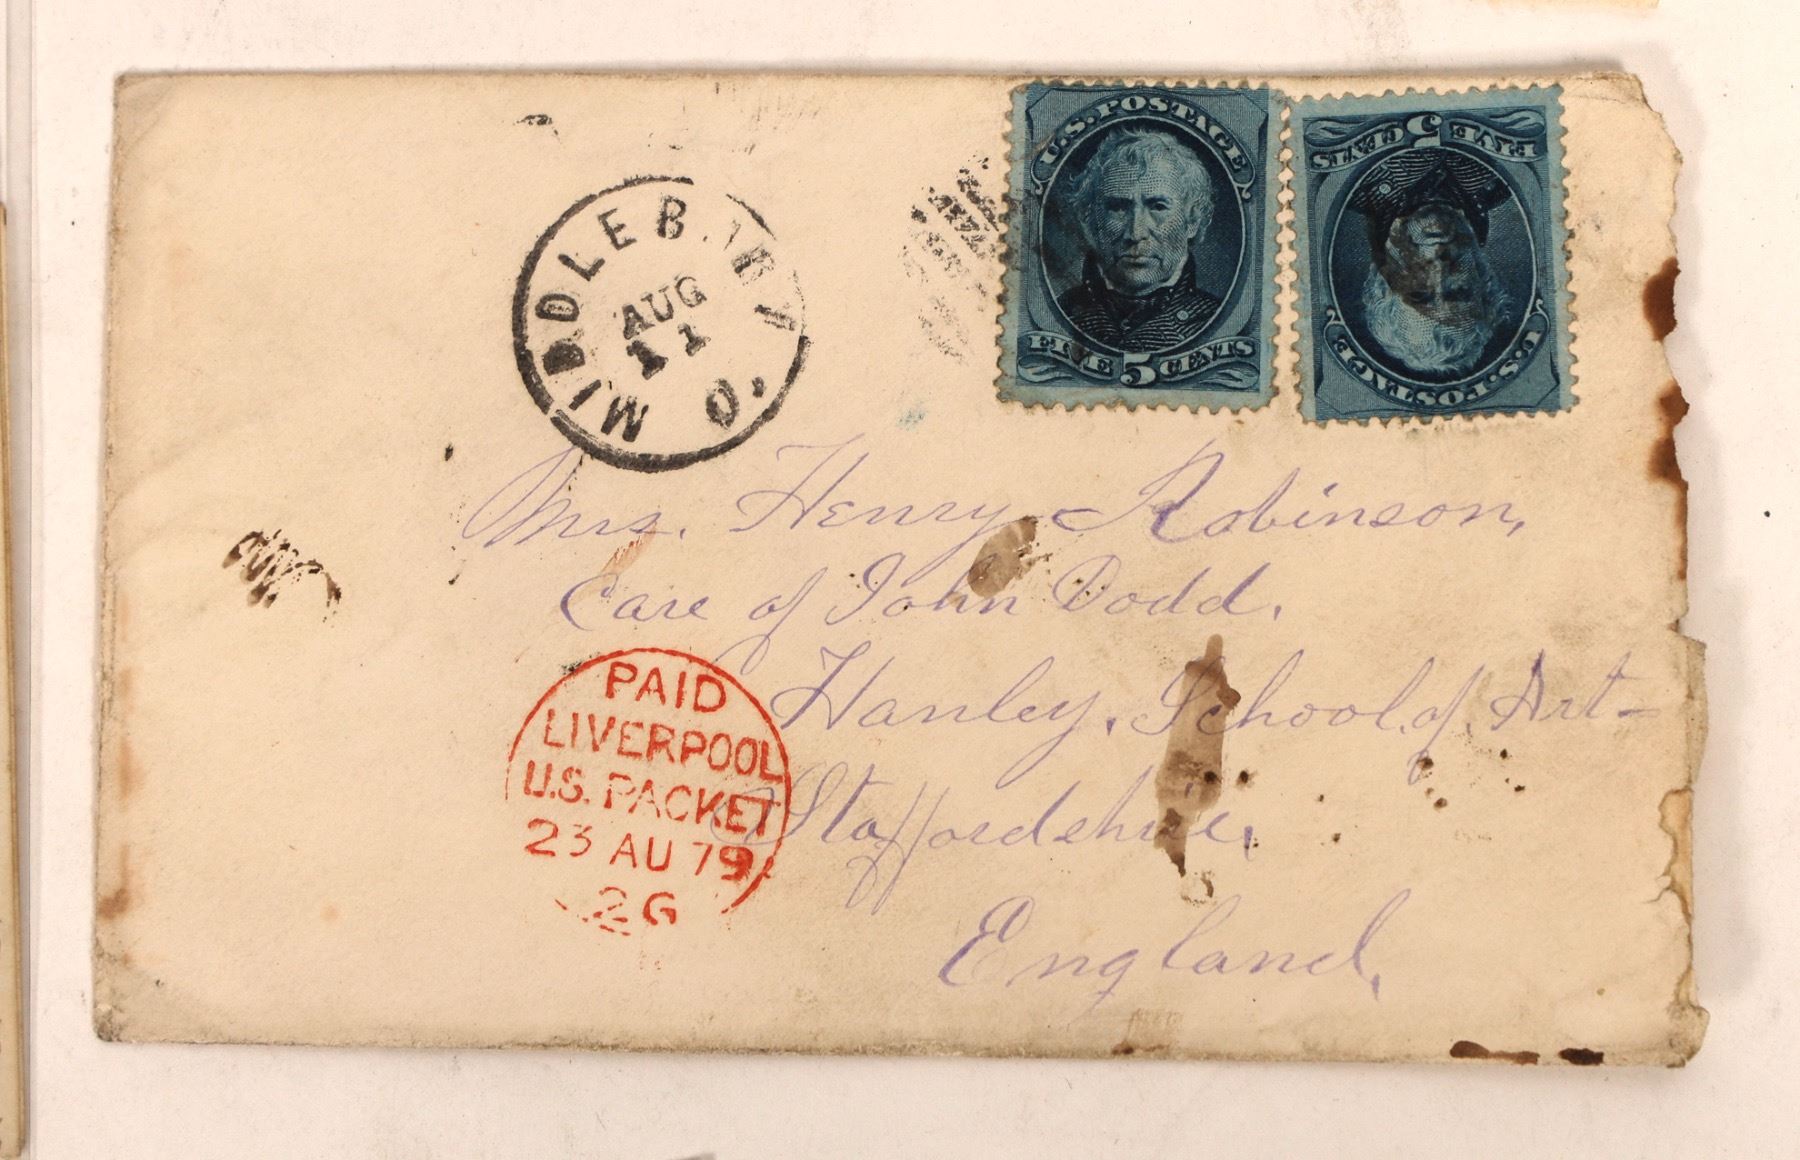 U.S. POSTAGE
FIVE 5 CENTS
U.S. POSTAGE
FIVE 5 CENTS
AUG
11
O.
Mrs. Henry Robinson,
Care of John Dodd.
Hanley, School of Art-
Staffordshire,
England,
PAID
LIVERPOOL
U.S. PACKET
23 AU 79
2G